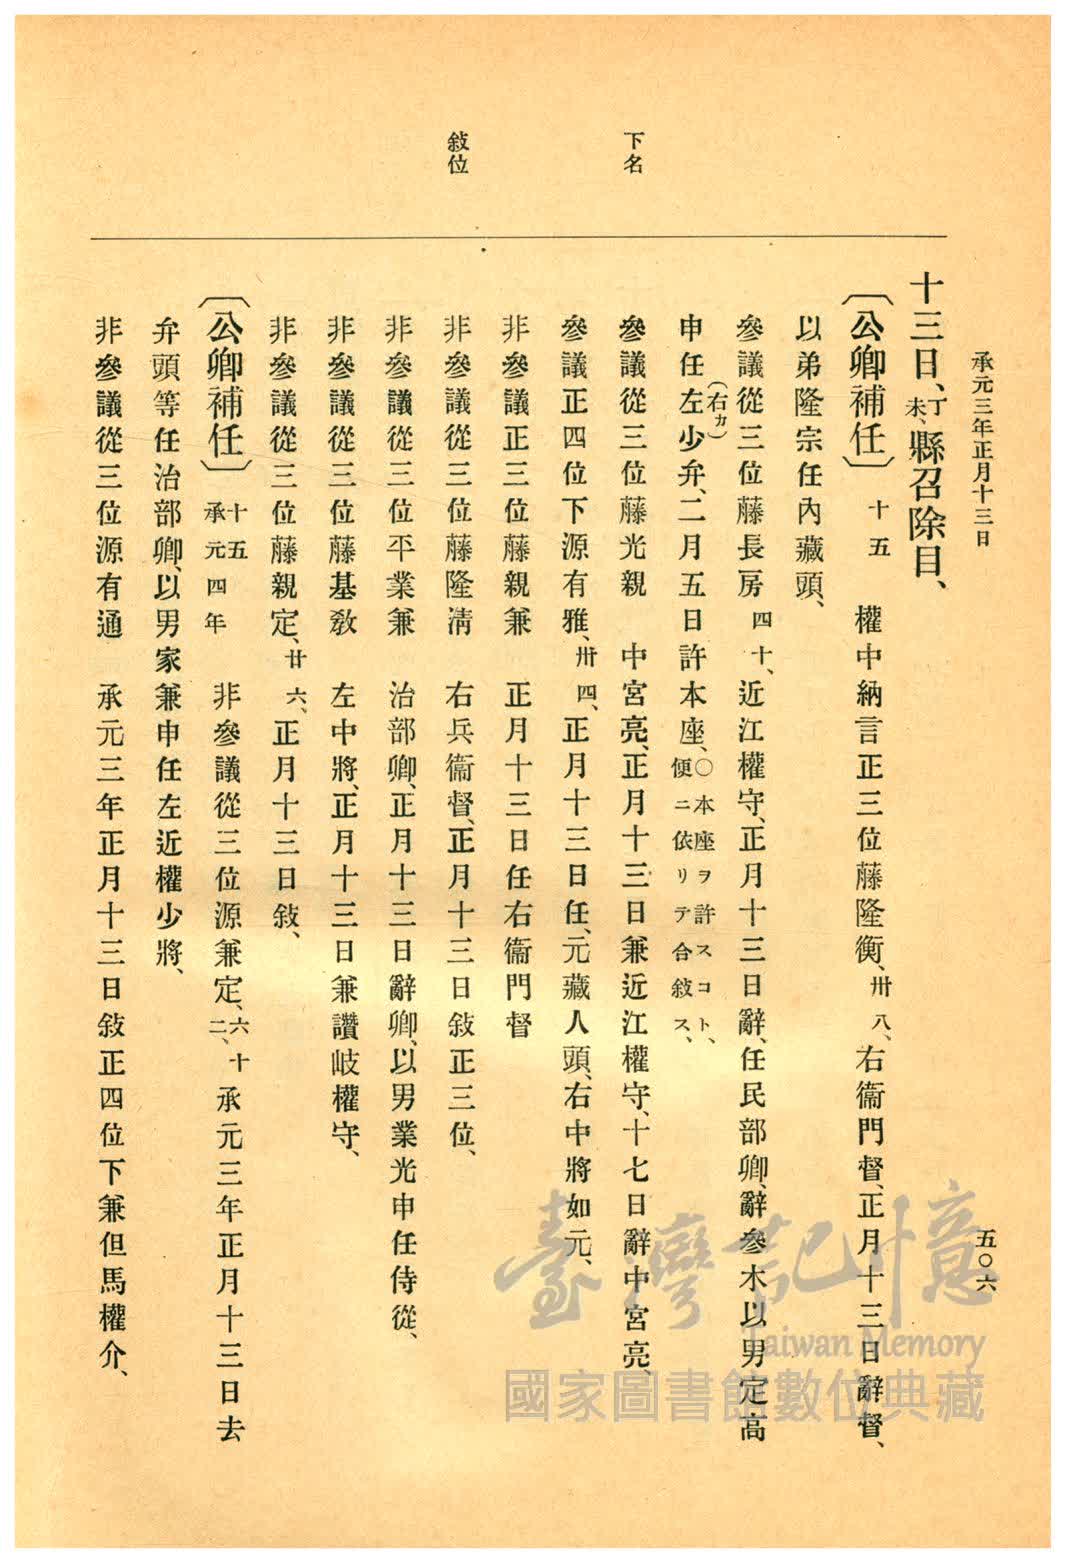 承元三年正月十三日
五〇六
下名
敍位
十三日、丁未、縣召除目、
〔公卿補任〕 十五 權中納言正三位藤隆衡、卅八、右衞門督、正月十三日辭督、
以弟隆宗任內藏頭、
參議從三位藤長房 四十、近江權守、正月十三日辭、任民部卿、辭參木以男定高
申任左(右カ)少弁、二月五日許本座、〇本座ヲ許スコト、便ニ依リテ合敍ス、
參議從三位藤光親 中宮亮、正月十三日兼近江權守、十七日辭中宮亮、
參議正四位下源有雅、卅四、正月十三日任、元藏人頭、右中將如元、
非參議正三位藤親兼 正月十三日任右衞門督
非參議從三位藤隆淸 右兵衞督、正月十三日敍正三位、
非參議從三位平業兼 治部卿、正月十三日辭卿、以男業光申任侍從、
非參議從三位藤基敎 左中將、正月十三日兼讚岐權守、
非參議從三位藤親定、廿六、正月十三日敍、
〔公卿補任〕 十五 承元四年 非參議從三位源兼定、六十二、承元三年正月十三日去
弁頭等任治部卿、以男家兼申任左近權少將、
非參議從三位源有通 承元三年正月十三日敍正四位下兼但馬權介、
臺灣記憶
Taiwan Memory
國家圖書館數位典藏